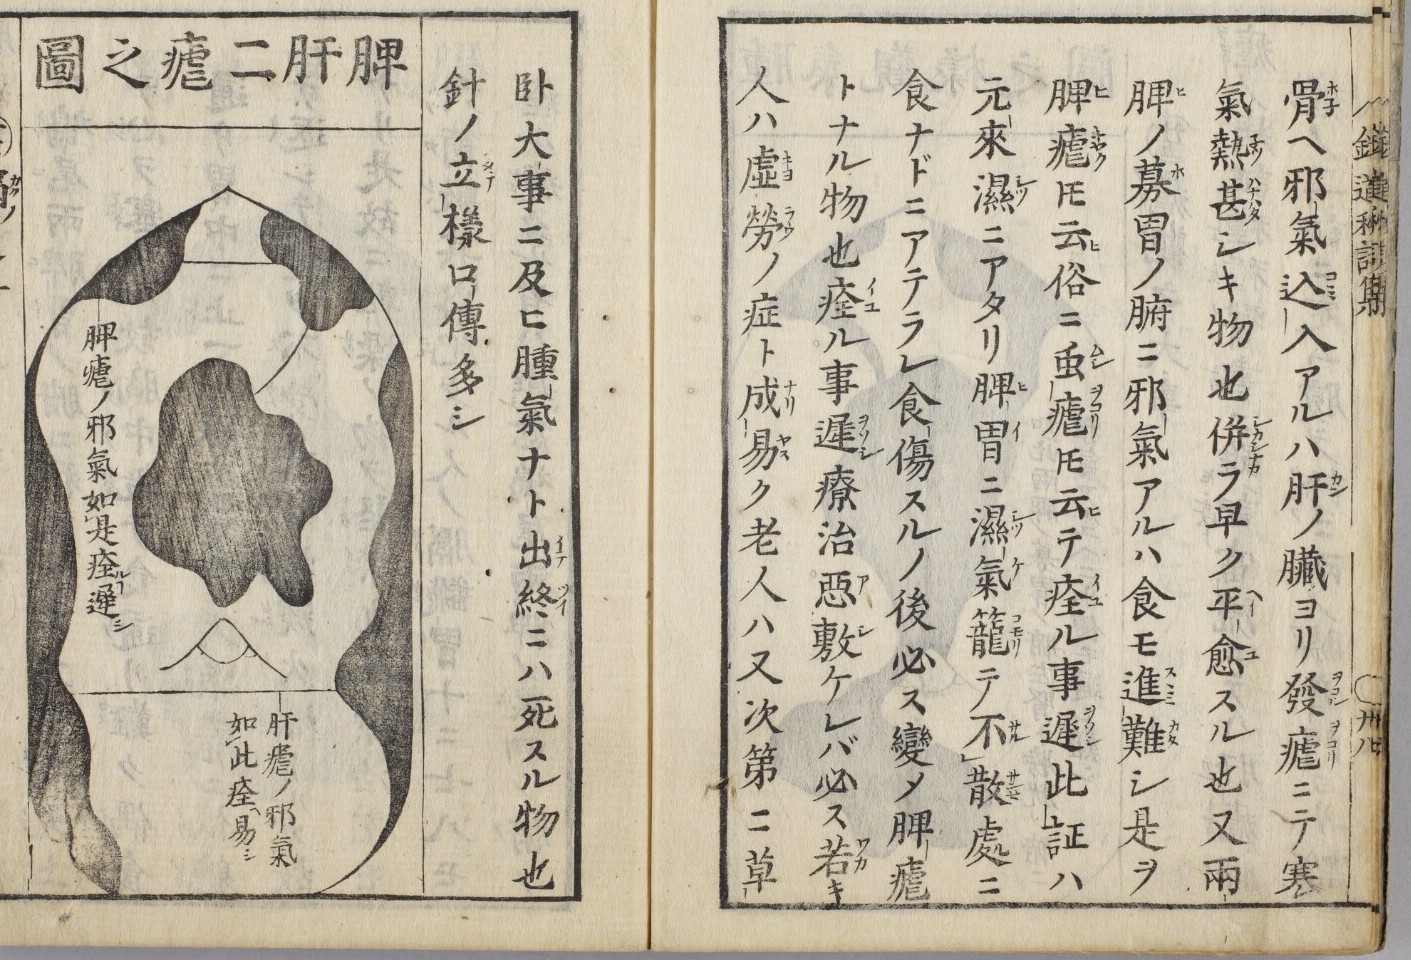 骨ヘ邪氣込入アルハ肝ノ臓ヨリ發瘧ニテ寒
氣熱甚シキ物也併ラ早ク平愈スル也又兩
脾ノ募胃ノ腑ニ邪氣アルハ食モ進難シ是ヲ
脾瘧𪜈云俗ニ虫瘧𪜈云テ痊ル事遲此証ハ
元來濕ニアタリ脾胃ニ濕氣籠テ不散處ニ
食ナドニアテラレ食傷スルノ後必ス變メ脾瘧
トナル物也痊ル事遲療治惡敷ケレバ必ス若キ
人ハ虛勞ノ症ト成易ク老人ハ又次第ニ草
臥大事ニ及ヒ腫氣ナト出終ニハ死スル物也
針ノ立樣口傳多シ
脾肝二瘧之圖
脾瘧ノ邪氣如是痊遲シ
肝瘧ノ邪氣
如此痊易シ